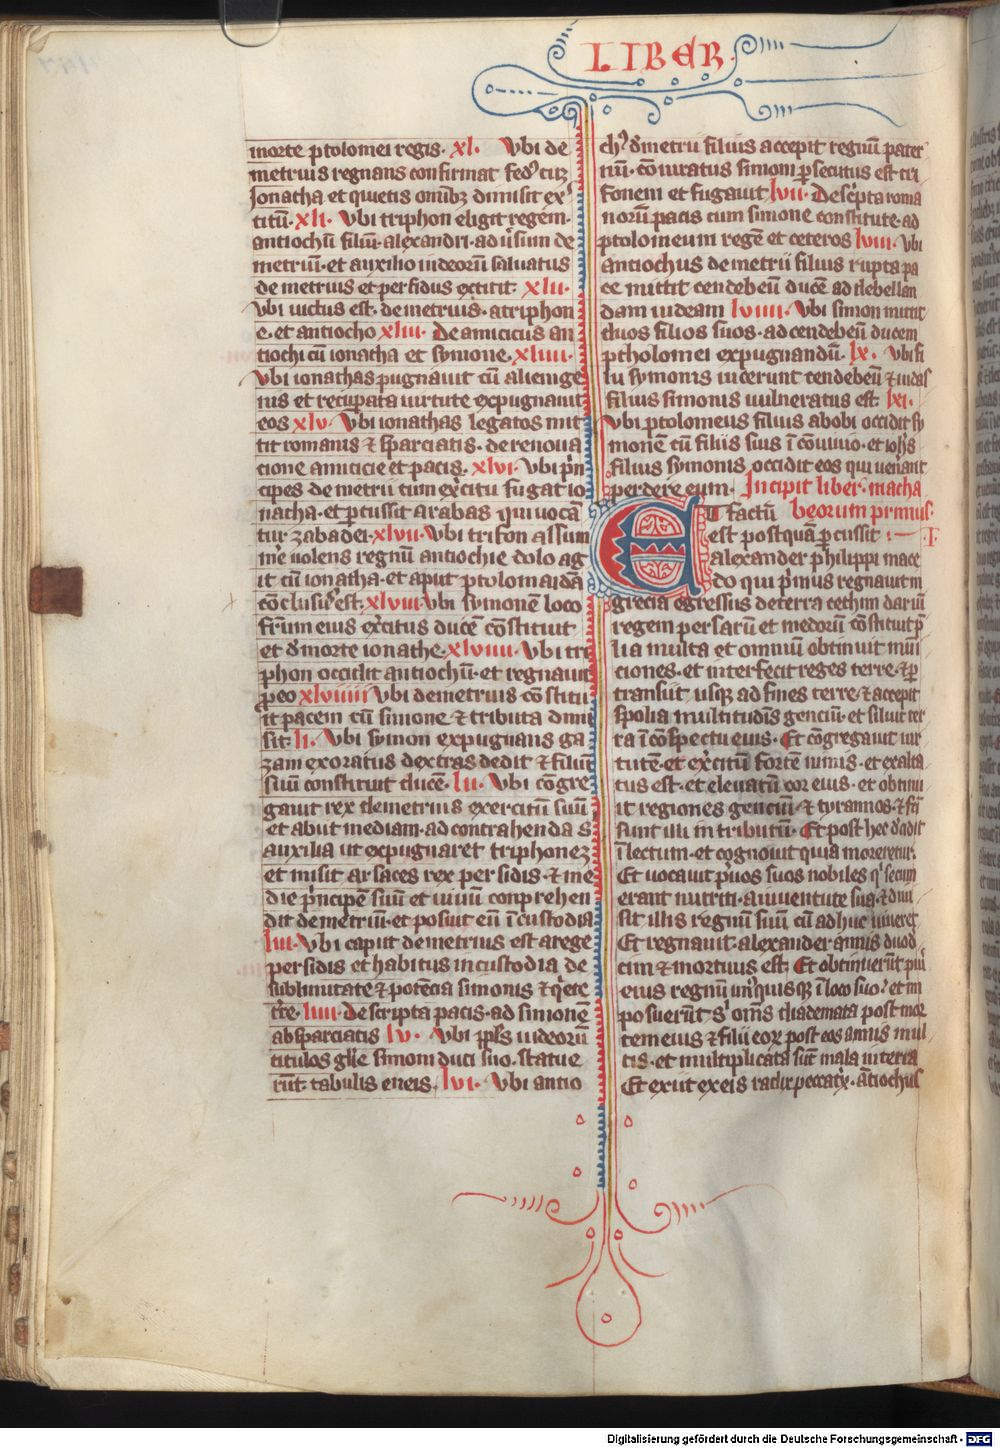 LIBER
morte ptolomei regis. xl. Vbi de
metrius regnans confirmat fedꝰ cuz
Jonatha et quietis omĩbꝫ dimisit exˀ
titũ. xli. Vbi triphon eligit regem.
antiochũ filiũ. alexandri. aduˀsum de
metriũ. et auxilio iudeorũ saluatus
de metrius et perfidus extitit. xlii.
Vbi uictus est. demetrius. a triphon
e. et antiocho xliii. De amicicus an
tiochi cũ ionatha et symone. xliiii.
Vbi ionathas pugnauit cũ alienige
nis et recupata uirtute expugnauit
eos xlv. Vbi ionathas legatos mit
tit romanis ⁊ sparciatis. de renoua
cione amicicie et pacis. xlvi. Vbi pˀn
cipes demetrii cum exˀcitu fugat io
nacha. et ꝑcussit arabas qui uocã
tur zabadei. xlvii. Vbi trifon assum
mˀe uolens regnũ antiochie dolo ag
it cũ ionatha. et aput ptolomaidã
cõclususˀ est. xlviii. Vbi symonẽ loco
frˀm eius exˀcitus ducẽ cõstituit
et dˀ morte ionathe. xlviiii. Vbi tri
phon occidit antiochũ. et regnauit
ꝓ eo xlviiiii Vbi demetrius cõstitu
it pacem cũ simone ⁊ tributa dimi
sit. li. Vbi symon expugnans ga
zam exoratus dextras dedit ⁊ filiũ
suũ constituit ducẽ. lii. Vbi cõgre
gauit rex demetrius exercitũ suũ
et abiit mediam. ad contrahenda s̃
auxilia ut expugnaret triphonez
et misit arsaces rex persidis. ⁊ me
die pˀncipẽ suũ et uiuũ conprehen
dit demetriũ. et posuit eũ ĩ custodia
liii. Vbi capiit demetrius est a rege
persidis et habitus in custodia de
sublimitate ⁊ potẽcia simonis ⁊ qˀete
tˀre. liiii. De scripta pacis. ad simonẽ
ab sparciatis lv. Vbi ipłs iudeorũ
titulos glˀie simoni duci suo. statue
rũt tabulis eneis. lvi. Vbi antio
chꝰ dˀmetrii filius accepit regnũ pater
nũ. coniuratus simoni ꝑsecutus est tri
fonem et fugauit lvii. De scˀpta roma
norũ pacis cum simone constitute. ad
ptolomeum regẽ et ceteros lviii. Vbi
antiochus demetrii filius rupta pa
ce mittit cendebeũ ducẽ ad debellan
dam iudeam lviiii. Vbi simon mittit
duos filios suos. ad cendebeũ ducem
ptholomei expugnandũ. lx. Vbi fi
lii symonis uicerunt cendebeũ ⁊ iudas
filius simonis uulneratus est lxi.
Vbi ptolomeus filius abobi occidit sy
monẽ cũ filiis suis ĩ cõuiuio. et iohˀs
filius symonis occidit eos qui uenˀant
perdere eum. Incipit liber. macha
beorum primus.
ET factũ
est postquã ꝑcussit I
alexander philippi mace
do qui pˀmus regnauit in
grecia egressus de terra cethim dariũ
regem persarũ et medorũ cõstituit pˀ
lia multa et omniũ obtinuit mũi
ciones. et interfecit reges terre. ⁊ ꝑ
transiit usqꝫ ad fines terre ⁊ accepit
spolia multitudĩs genciũ. et siluit ter
ra ĩ cõspectu eius. Et cõgregauit uir
tutẽ. et exˀcitũ fortẽ nimis. et exalta
tus est. et eleuatũ cor eius. et obtinu
it regiones genciũ ⁊ tyrannos. ⁊ fcˀi
sunt illi in tributũ. Et post hec dˀcidit
ĩ lectum. et cognouit quia moreretur.
Et uocauit pˀuos suos nobiles qˀ secum
erant nutriti. a iuuentute sua. ⁊ diui
sit illis regnũ suũ cũ adhuc uiueret
Et regnauit. alexander annis duod
cim ⁊ mortuus est. Et obtinuerũt puˀi
eius regnũ unꝰquisqꝫ ĩ loco suo. et im
posuerũt sˀ omˀs diademata post mor
tem eius ⁊ filii eoꝝ post eos annis mul
tis. et multiplicata sũt mala in terra
Et exiit ex eis radix peccatˀx. ãtiochus
Digitalisierung gefördert durch die Deutsche Forschungsgemeinschaft - DFG